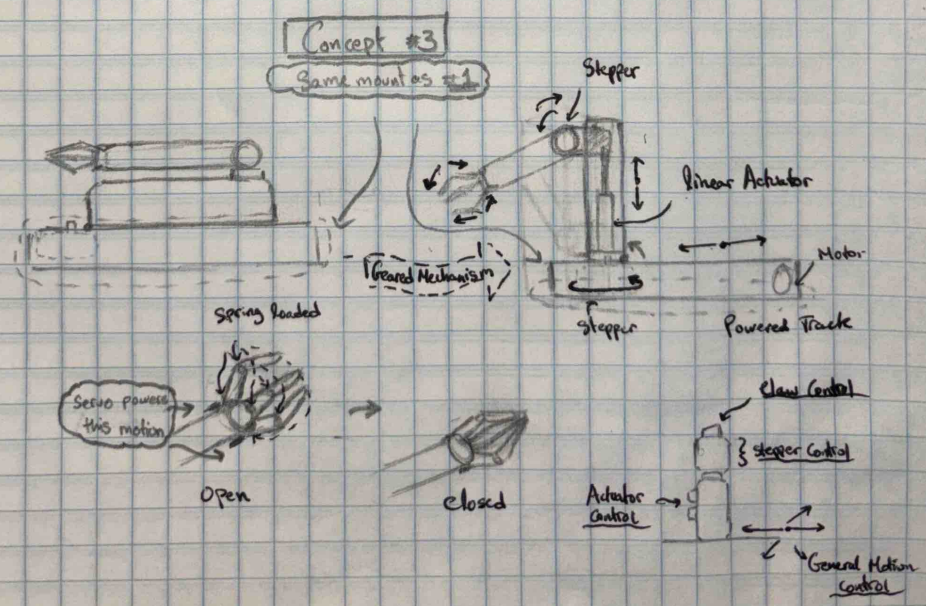 Concept #3
Same mount as #1
Stepper
linear Actuator
Geared Mechanism
Motor
Spring loaded
Stepper
Powered Track
Servo powers
this motion
Open
Closed
Claw Control
Stepper Control
Actuator
Control
General Motion
Control